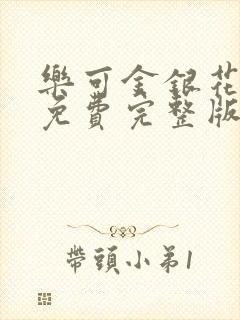 樂可金銀花
免費完整版
帶頭小弟1